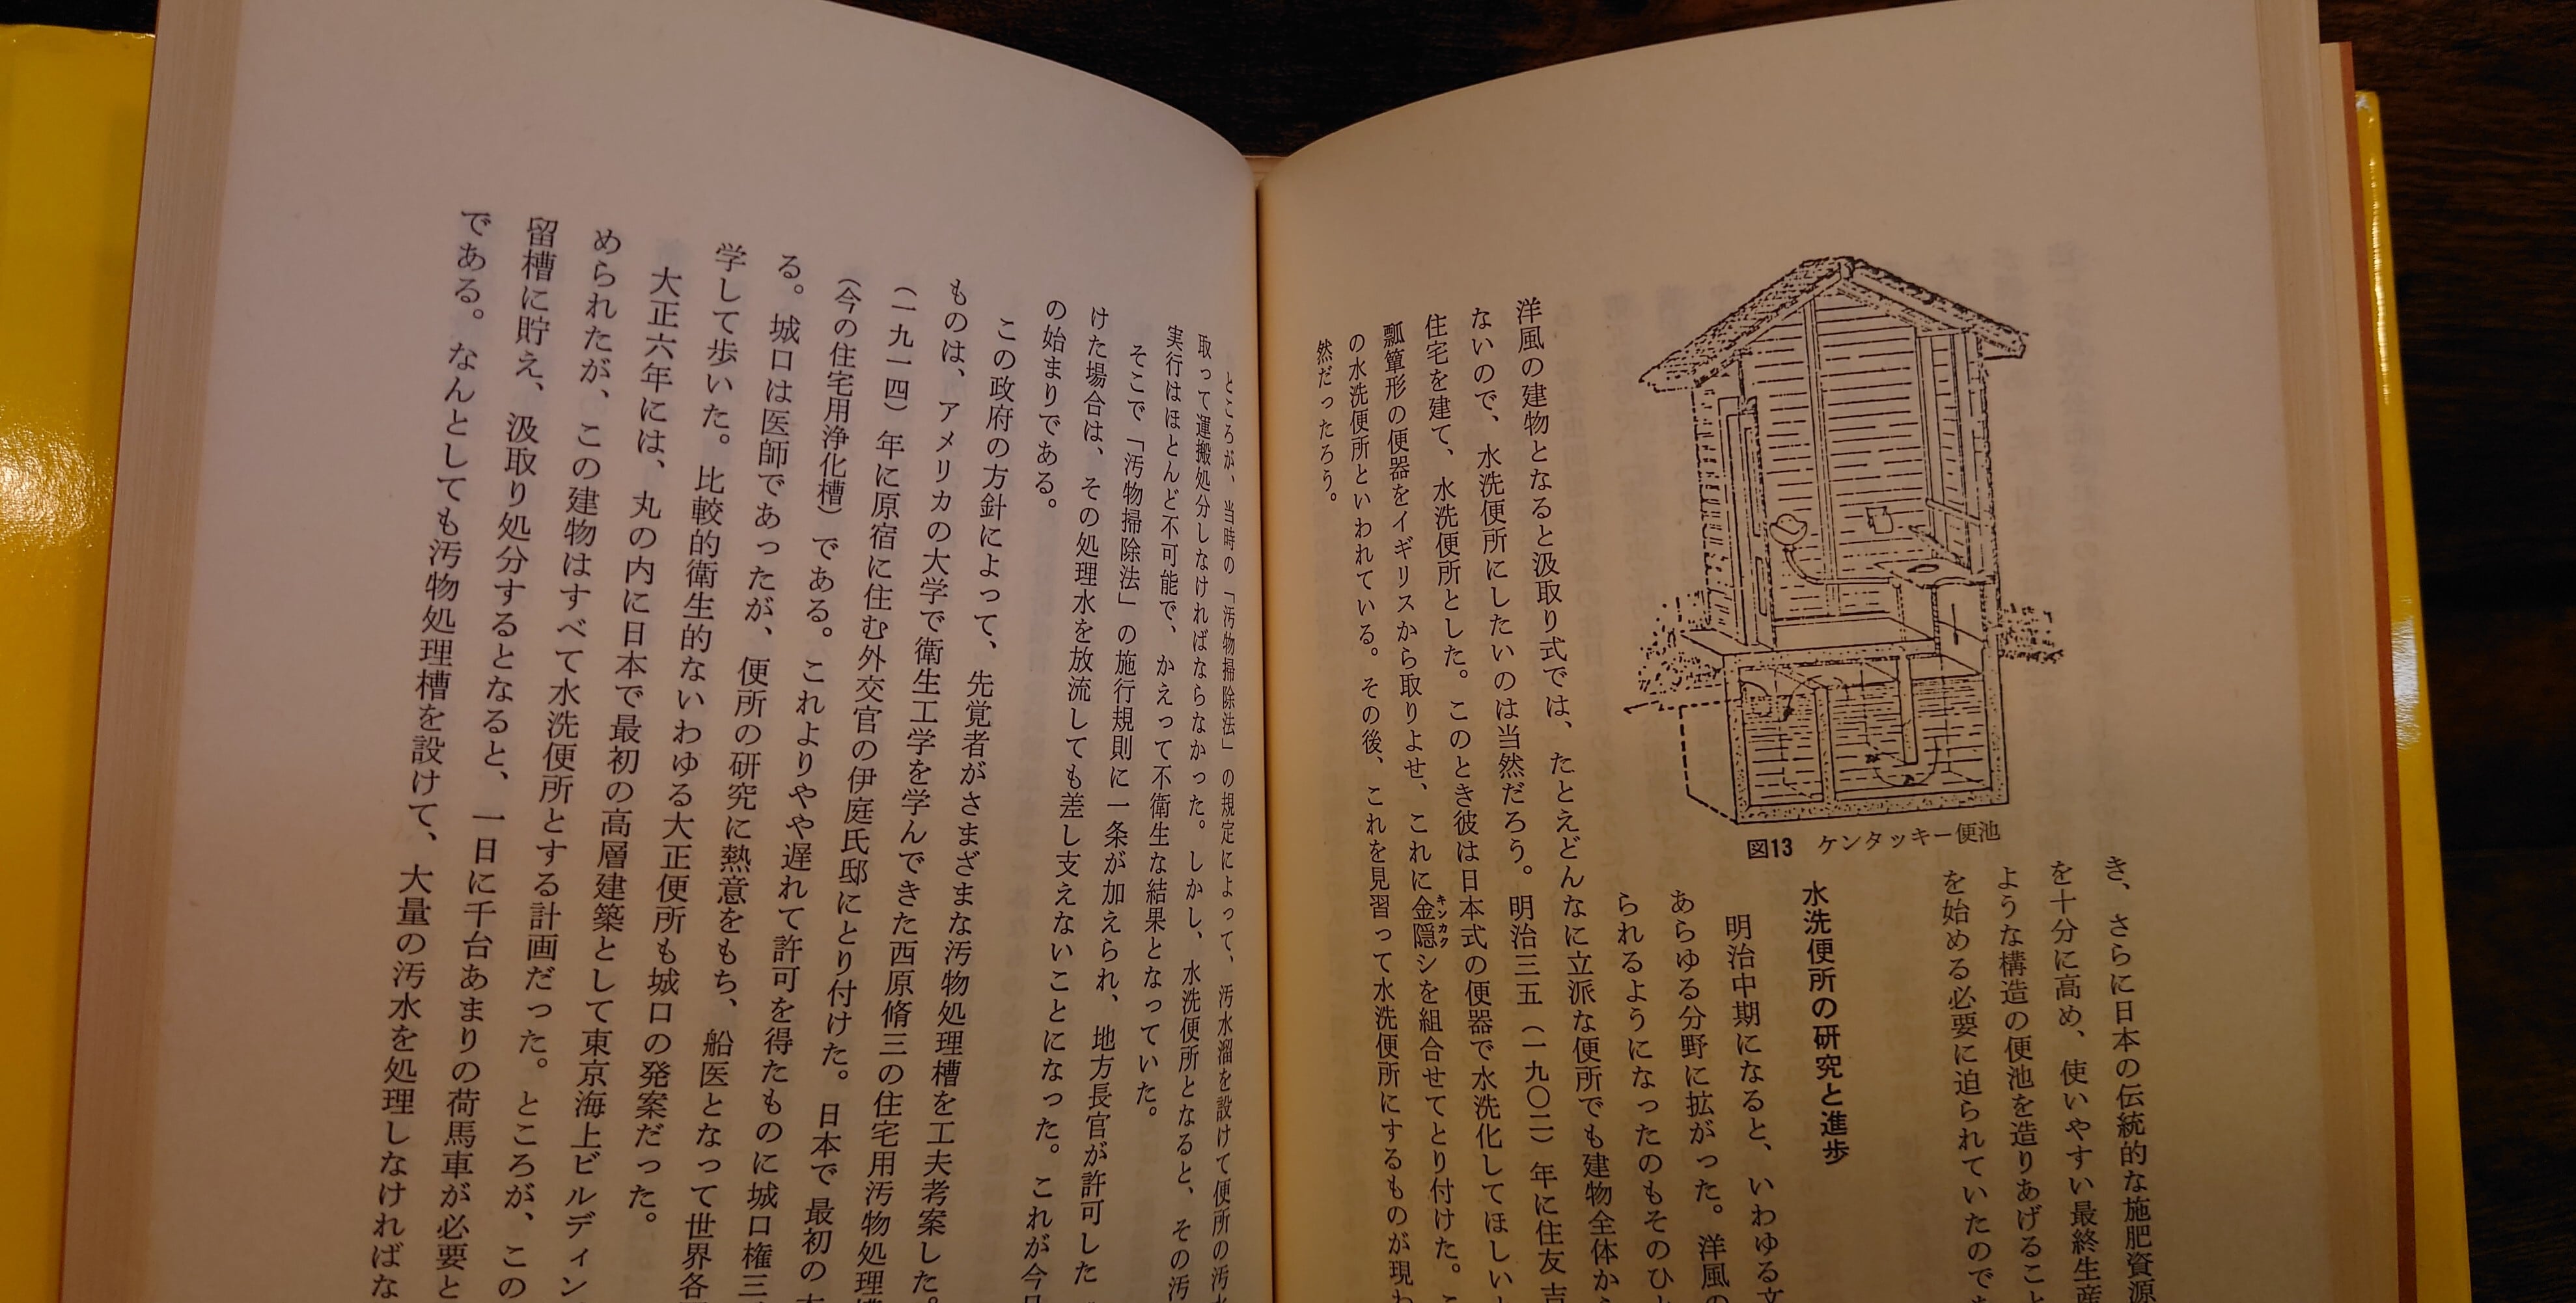 き、さらに日本の伝統的な施肥資源
を十分に高め、使いやすい最終生産
ような構造の便池を造りあげること
を始める必要に迫られていたので
図13 ケンタッキー便池
水洗便所の研究と進歩
明治中期になると、いわゆる文
あらゆる分野に拡がった。洋風の
られるようになったのもそのひと
洋風の建物となると汲取り式では、たとえどんなに立派な便所でも建物全体から
ないので、水洗便所にしたいのは当然だろう。明治三五(一九〇二)年に住友吉
住宅を建て、水洗便所とした。このとき彼は日本式の便器で水洗化してほしいと
瓢簞形の便器をイギリスから取りよせ、これに金隠シを組合せてとり付けた。こ
キンカク
の水洗便所といわれている。その後、これを見習って水洗便所にするものが現わ
然だったろう。
ところが、当時の「汚物掃除法」の規定によって、汚水溜を設けて便所の汚水
取って運搬処分しなければならなかった。しかし、水洗便所となると、その汚
実行はほとんど不可能で、かえって不衛生な結果となっていた。
そこで「汚物掃除法」の施行規則に一条が加えられ、地方長官が許可した
けた場合は、その処理水を放流しても差し支えないことになった。これが今日
の始まりである。
この政府の方針によって、先覚者がさまざまな汚物処理槽を工夫考案した。
ものは、アメリカの大学で衛生工学を学んできた西原脩三の住宅用汚物処理槽
(一九一四)年に原宿に住む外交官の伊庭氏邸にとり付けた。日本で最初の
(今の住宅用浄化槽)である。これよりやや遅れて許可を得たものに城口権三
る。城口は医師であったが、便所の研究に熱意をもち、船医となって世界各
学して歩いた。比較的衛生的ないわゆる大正便所も城口の発案だった。
大正六年には、丸の内に日本で最初の高層建築として東京海上ビルディン
められたが、この建物はすべて水洗便所とする計画だった。ところが、この
留槽に貯え、汲取り処分するとなると、一日に千台あまりの荷馬車が必要と
である。なんとしても汚物処理槽を設けて、大量の汚水を処理しなければな